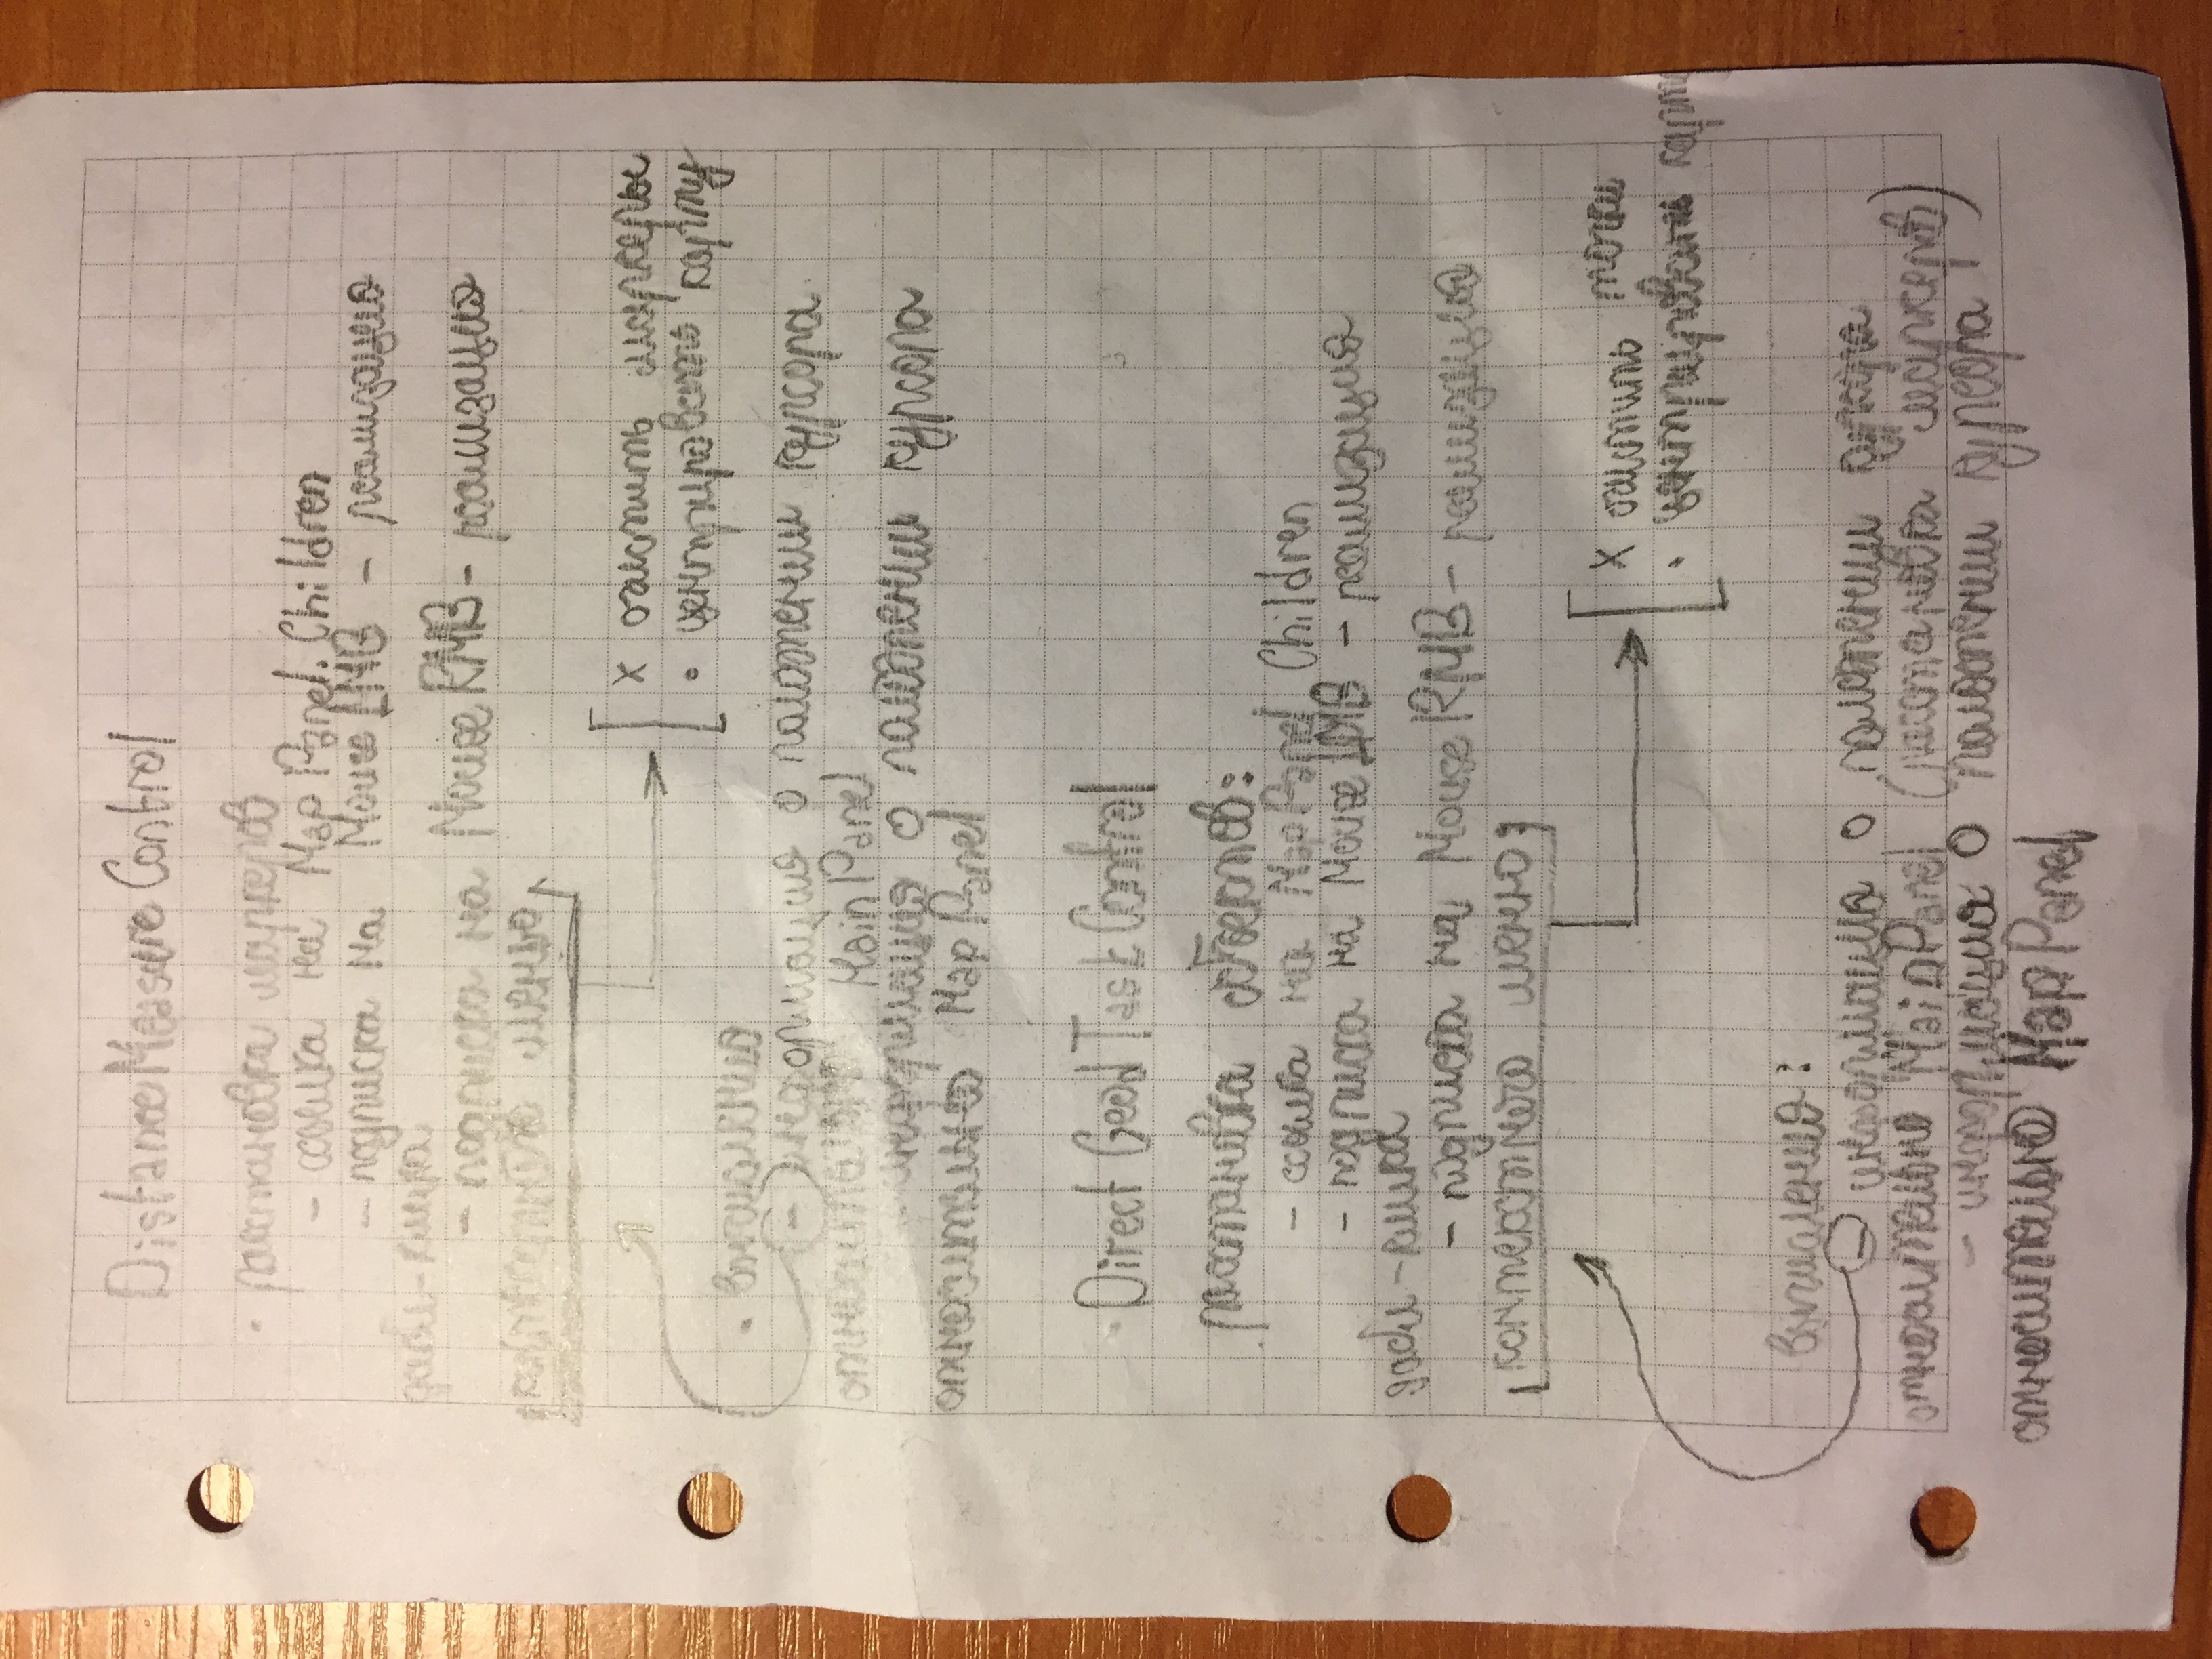 DistanceMeasureControl
· расстановка маркеров
– ссылка на MapPanel.Children
– подписка на MouseLMB – реализация
дабл-клика
– подписка на MouseRMB – реализация
контекстного меню
× очистить маркеры
• центрировать карту
· вычисления
– информация о положении курсора
относительно MainPanel
информация о положении курсора
относительно MapPanel
· DirectGeodTaskControl
расстановка объектов:
– ссылка на MapPanel Children
– подписка на MouseLMB – реализация
дабл-клика
– подписка на MouseRMB – реализация
контекстного меню:
× очистить точки
· центрировать карту
вычисления:
– информация о положении курсора
относительно MainPanel (расстановка маркеров)
– информация о положении курсора
относительно MapPanel